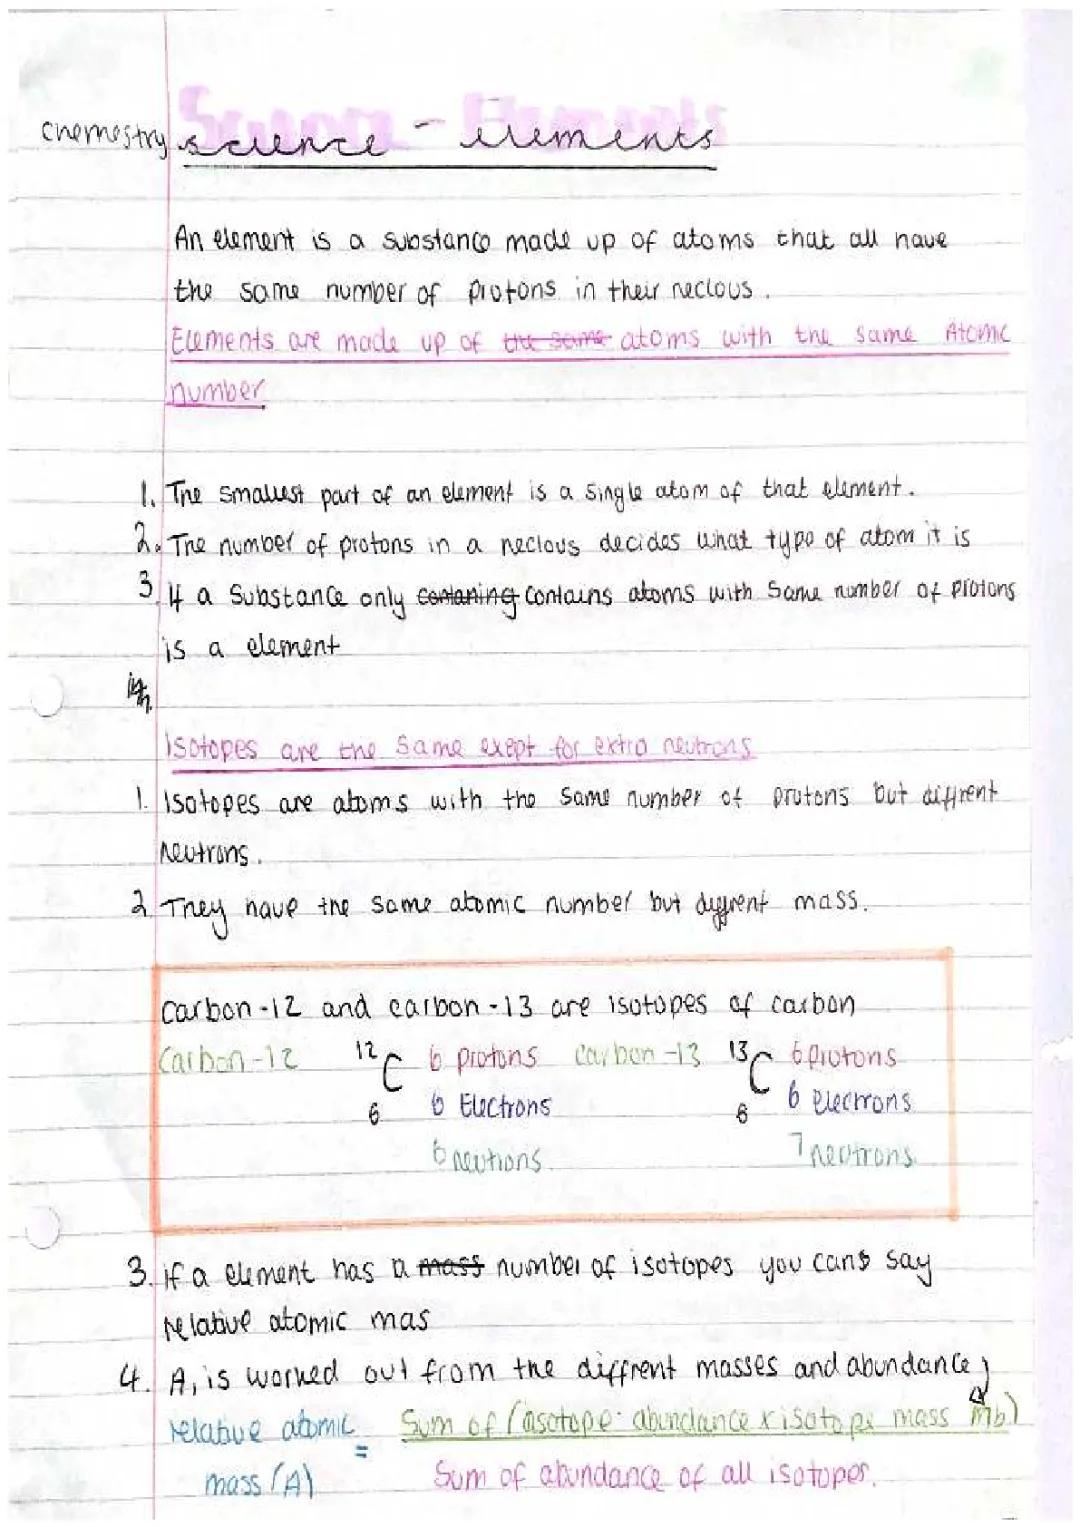 chemestry science - elements
An element is a substance made up of atoms that all have
the same number of protons in their neclous.
Elements are made up of the same atoms with the same Atomic
number
1. The smallest part of an element is a single atom of that element.
2. The number of protons in a neclous decides what type of atom it is
3. If a substance only contaning contains atoms with same number of protons
is a element
Isotopes are the same exept for extra neutrons
1. Isotopes are atoms with the same number of protons but diffrent
neutrons.
2 They have the same atomic number but diffrent mass.
carbon-12 and carbon-13 are isotopes of carbon
carbon-12 12 C 6 protons carbon-13 13 C 6 protons
6 6 Electrons 6 6 electrons
6 neutrons 7 neutrons
3. if a element has a mass number of isotopes you can say
relative atomic mas
4. A, is worked out from the diffrent masses and abundance
relative atomic = Sum of (isotope abundance x isotope mass nb)
mass (A) Sum of abundance of all isotopes.